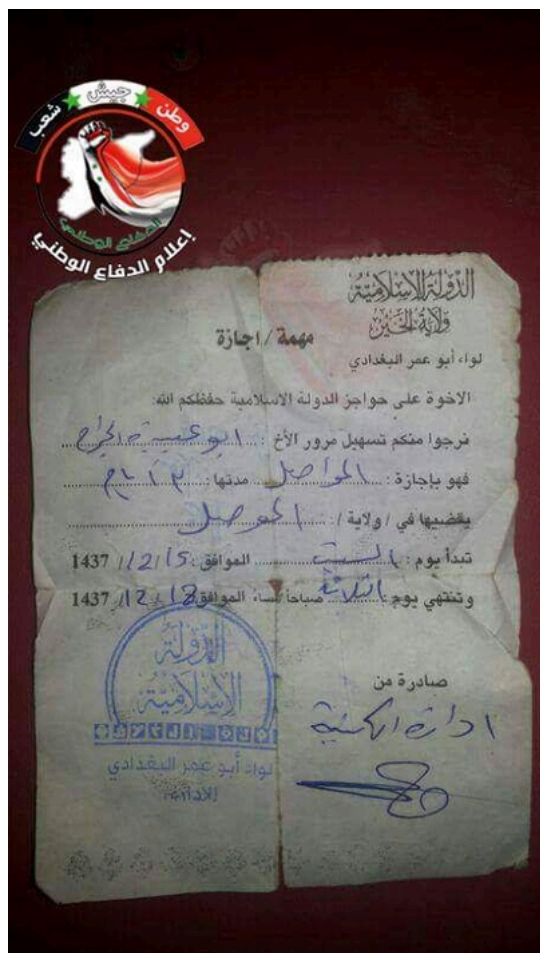 وطن جيش شعب
الدفاع الوطني
إعلام الدفاع الوطني
الدولة الإسلامية
ولاية الخير
مهمة / اجازة
لواء أبو عمر البغدادي
الاخوة على حواجز الدولة الاسلامية حفظكم الله:
نرجوا منكم تسهيل مرور الأخ : ابو عبيدة الجراح
فهو بإجازة : مدتها :
يقضيها في / ولاية / : الموصل
تبدأ يوم : السبت الموافق : 15/12/ 1437
وتنتهي يوم : الثلاثة صباحاً/مساءً الموافق 12/ 1437
صادرة من
ادارة الكتيبة
الدولة
الإسلامية
لواء أبو عمر البغدادي
الإدارة